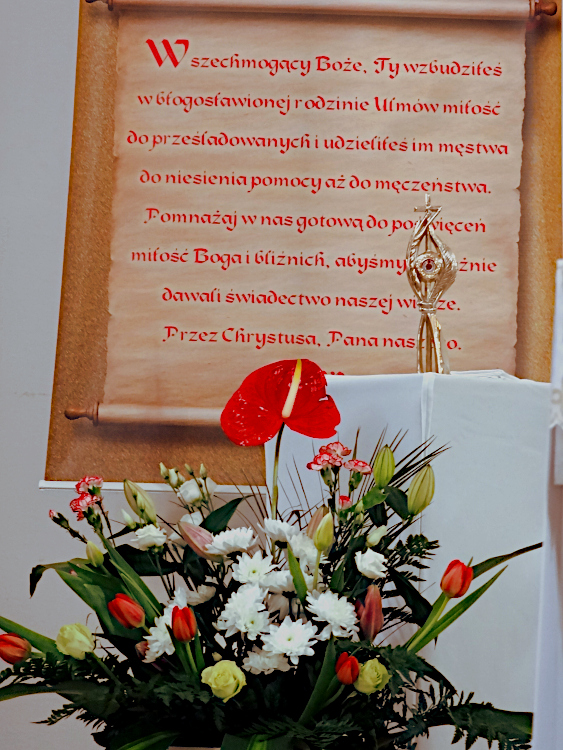 Wszechmogący Boże, Ty wzbudziłeś
w błogosławionej rodzinie Ulmów miłość
do prześladowanych i udzieliłeś im męstwa
do niesienia pomocy aż do męczeństwa.
Pomnażaj w nas gotową do po więceń
miłość Boga i bliźnich, abyśmy źnie
dawali świadectwo naszej wi ze.
Przez Chrystusa, Pana nas o.